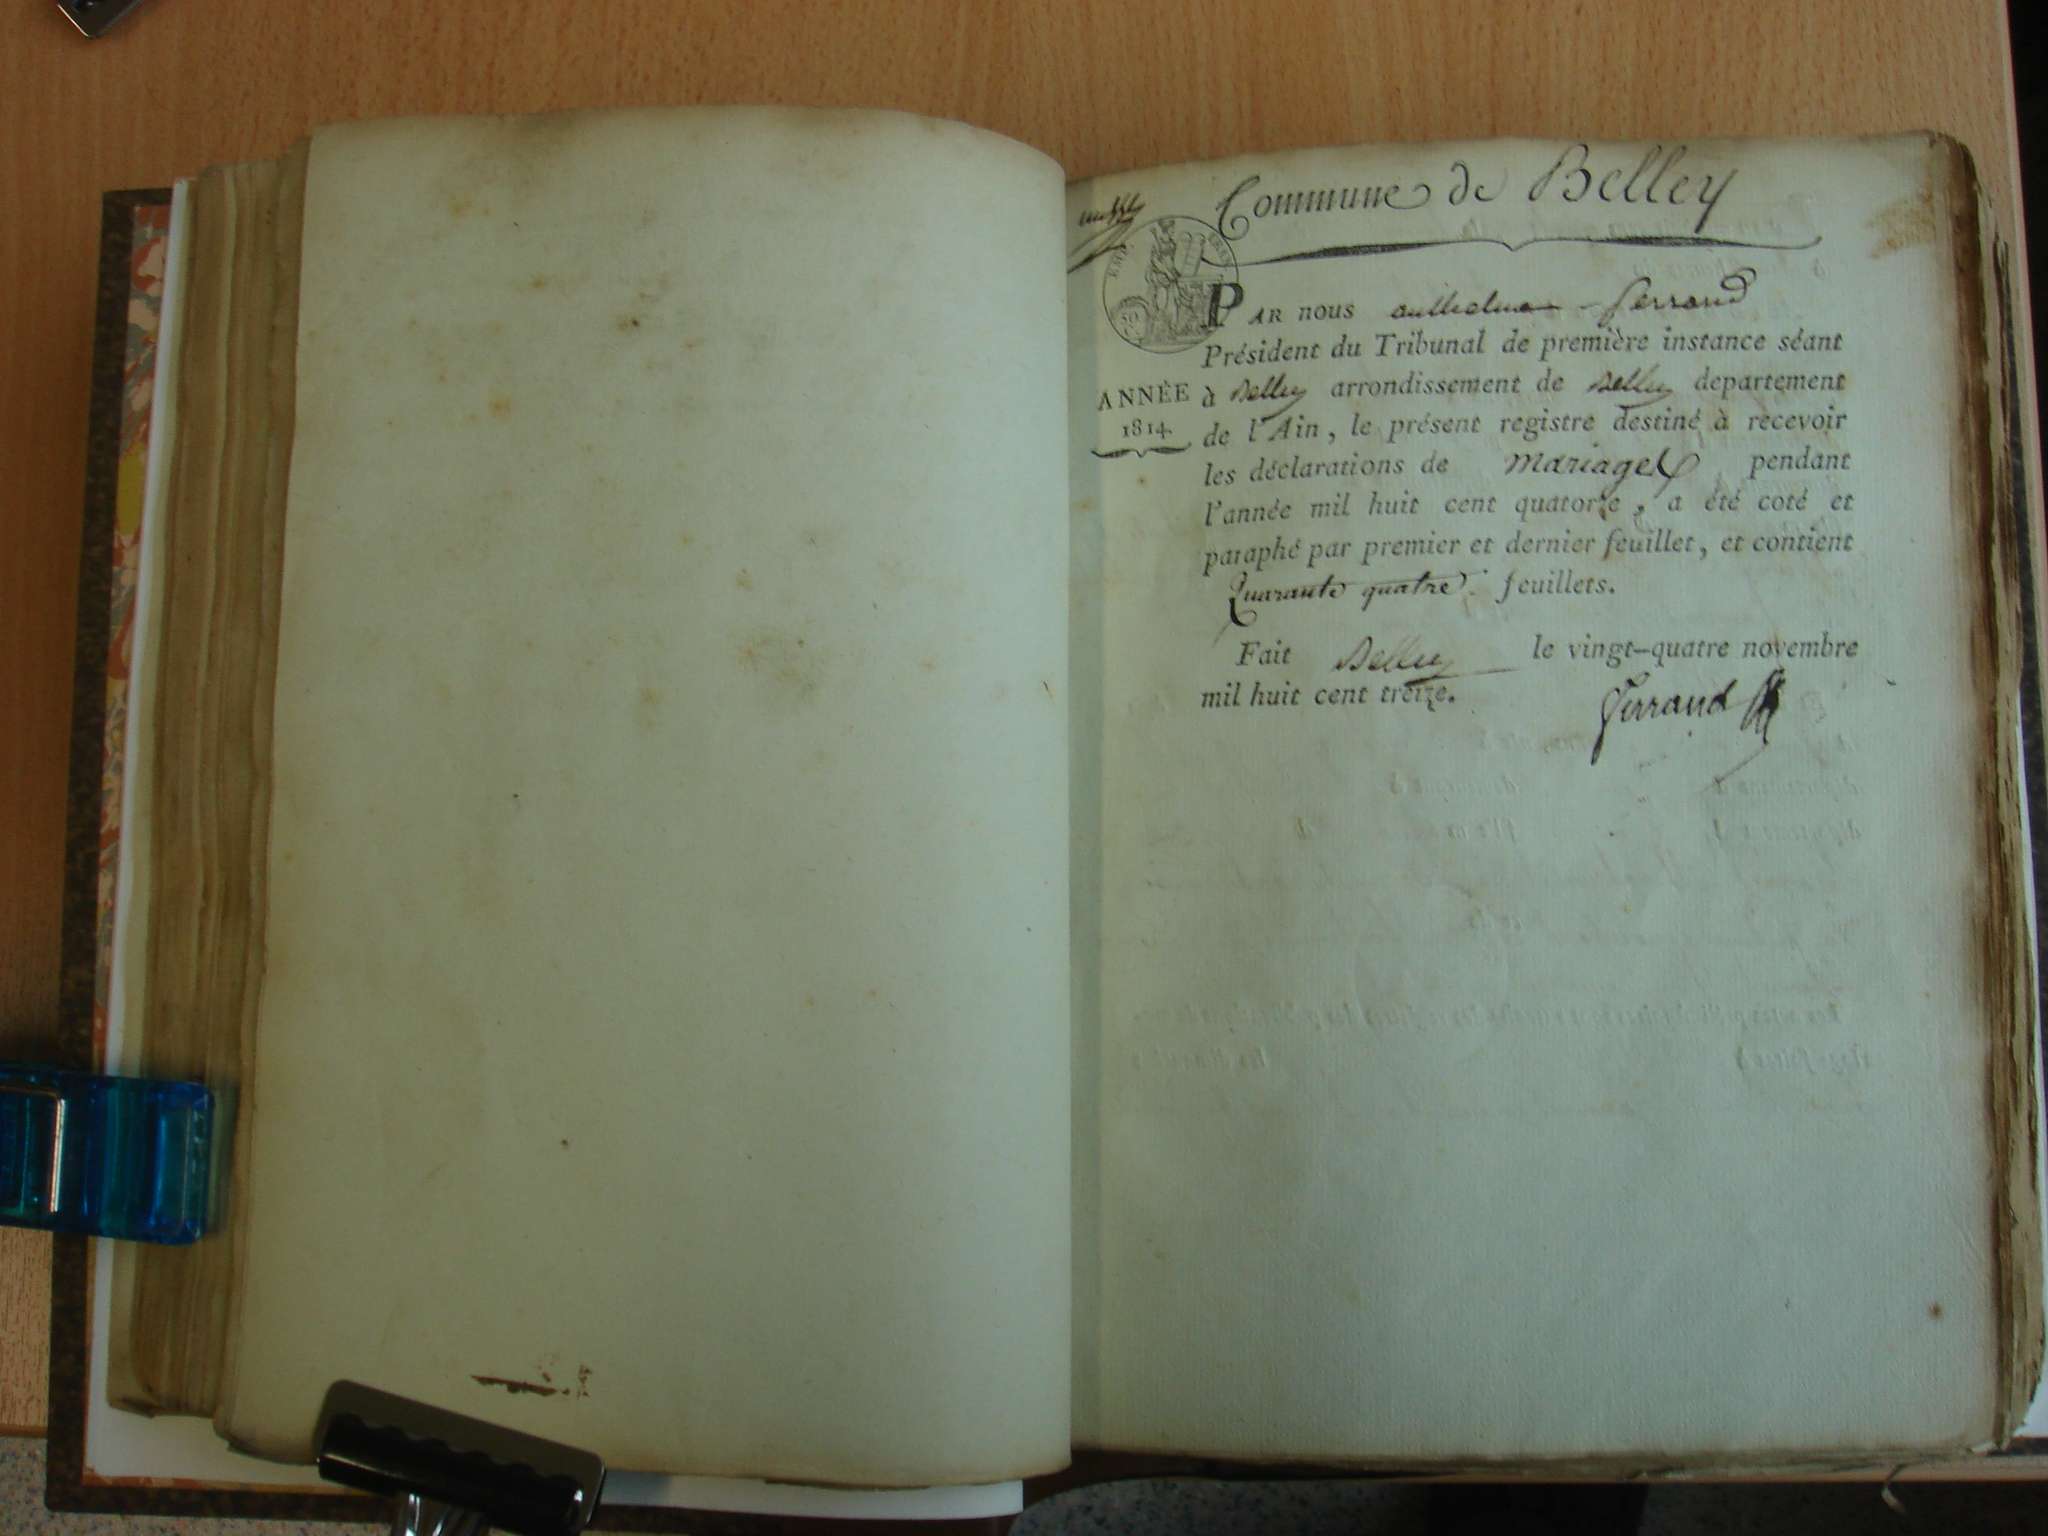 Commune de Belley
PAR nous anthelme Ferrand
Président du Tribunal de première instance séant
à Belley arrondissement de Belley departement
ANNÉE
1814.
de l'Ain, le présent registre destiné à recevoir
les déclarations de Mariages pendant
l'année mil huit cent quatorze, a été coté et
paraphé par premier et dernier feuillet, et contient
Quarante quatre feuillets.
Fait Belley le vingt-quatre novembre
mil huit cent treize.
Ferrand